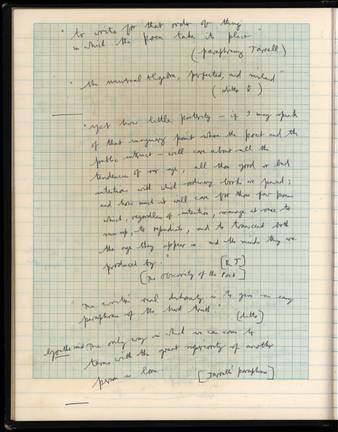 "to write for that order of things
in which the poem takes its place"
(paraphrasing Jarrell)
"the universal algebra, perfected, and misread"
(ditto)
"Yet how little posterity — if I may speak
of that imaginary point where the poet and the
public intersect — will care about all the
tendencies of our age, all those good or bad
intentions with which ordinary books are paved;
and how much it will care for those few poems
which, regardless of intention, manage at once to
sum up, to repudiate, and to transcend both
the age they appear in and the minds they are
produced by."
[R. J.]
[The Obscurity of the Poet]
"The writer's real dishonesty is to give an easy
paraphrase of the hard truth."
(ditto)
Goethe said The only way in which we can come to
terms with the great superiority of another
person is love.
[Jarrell paraphrase]